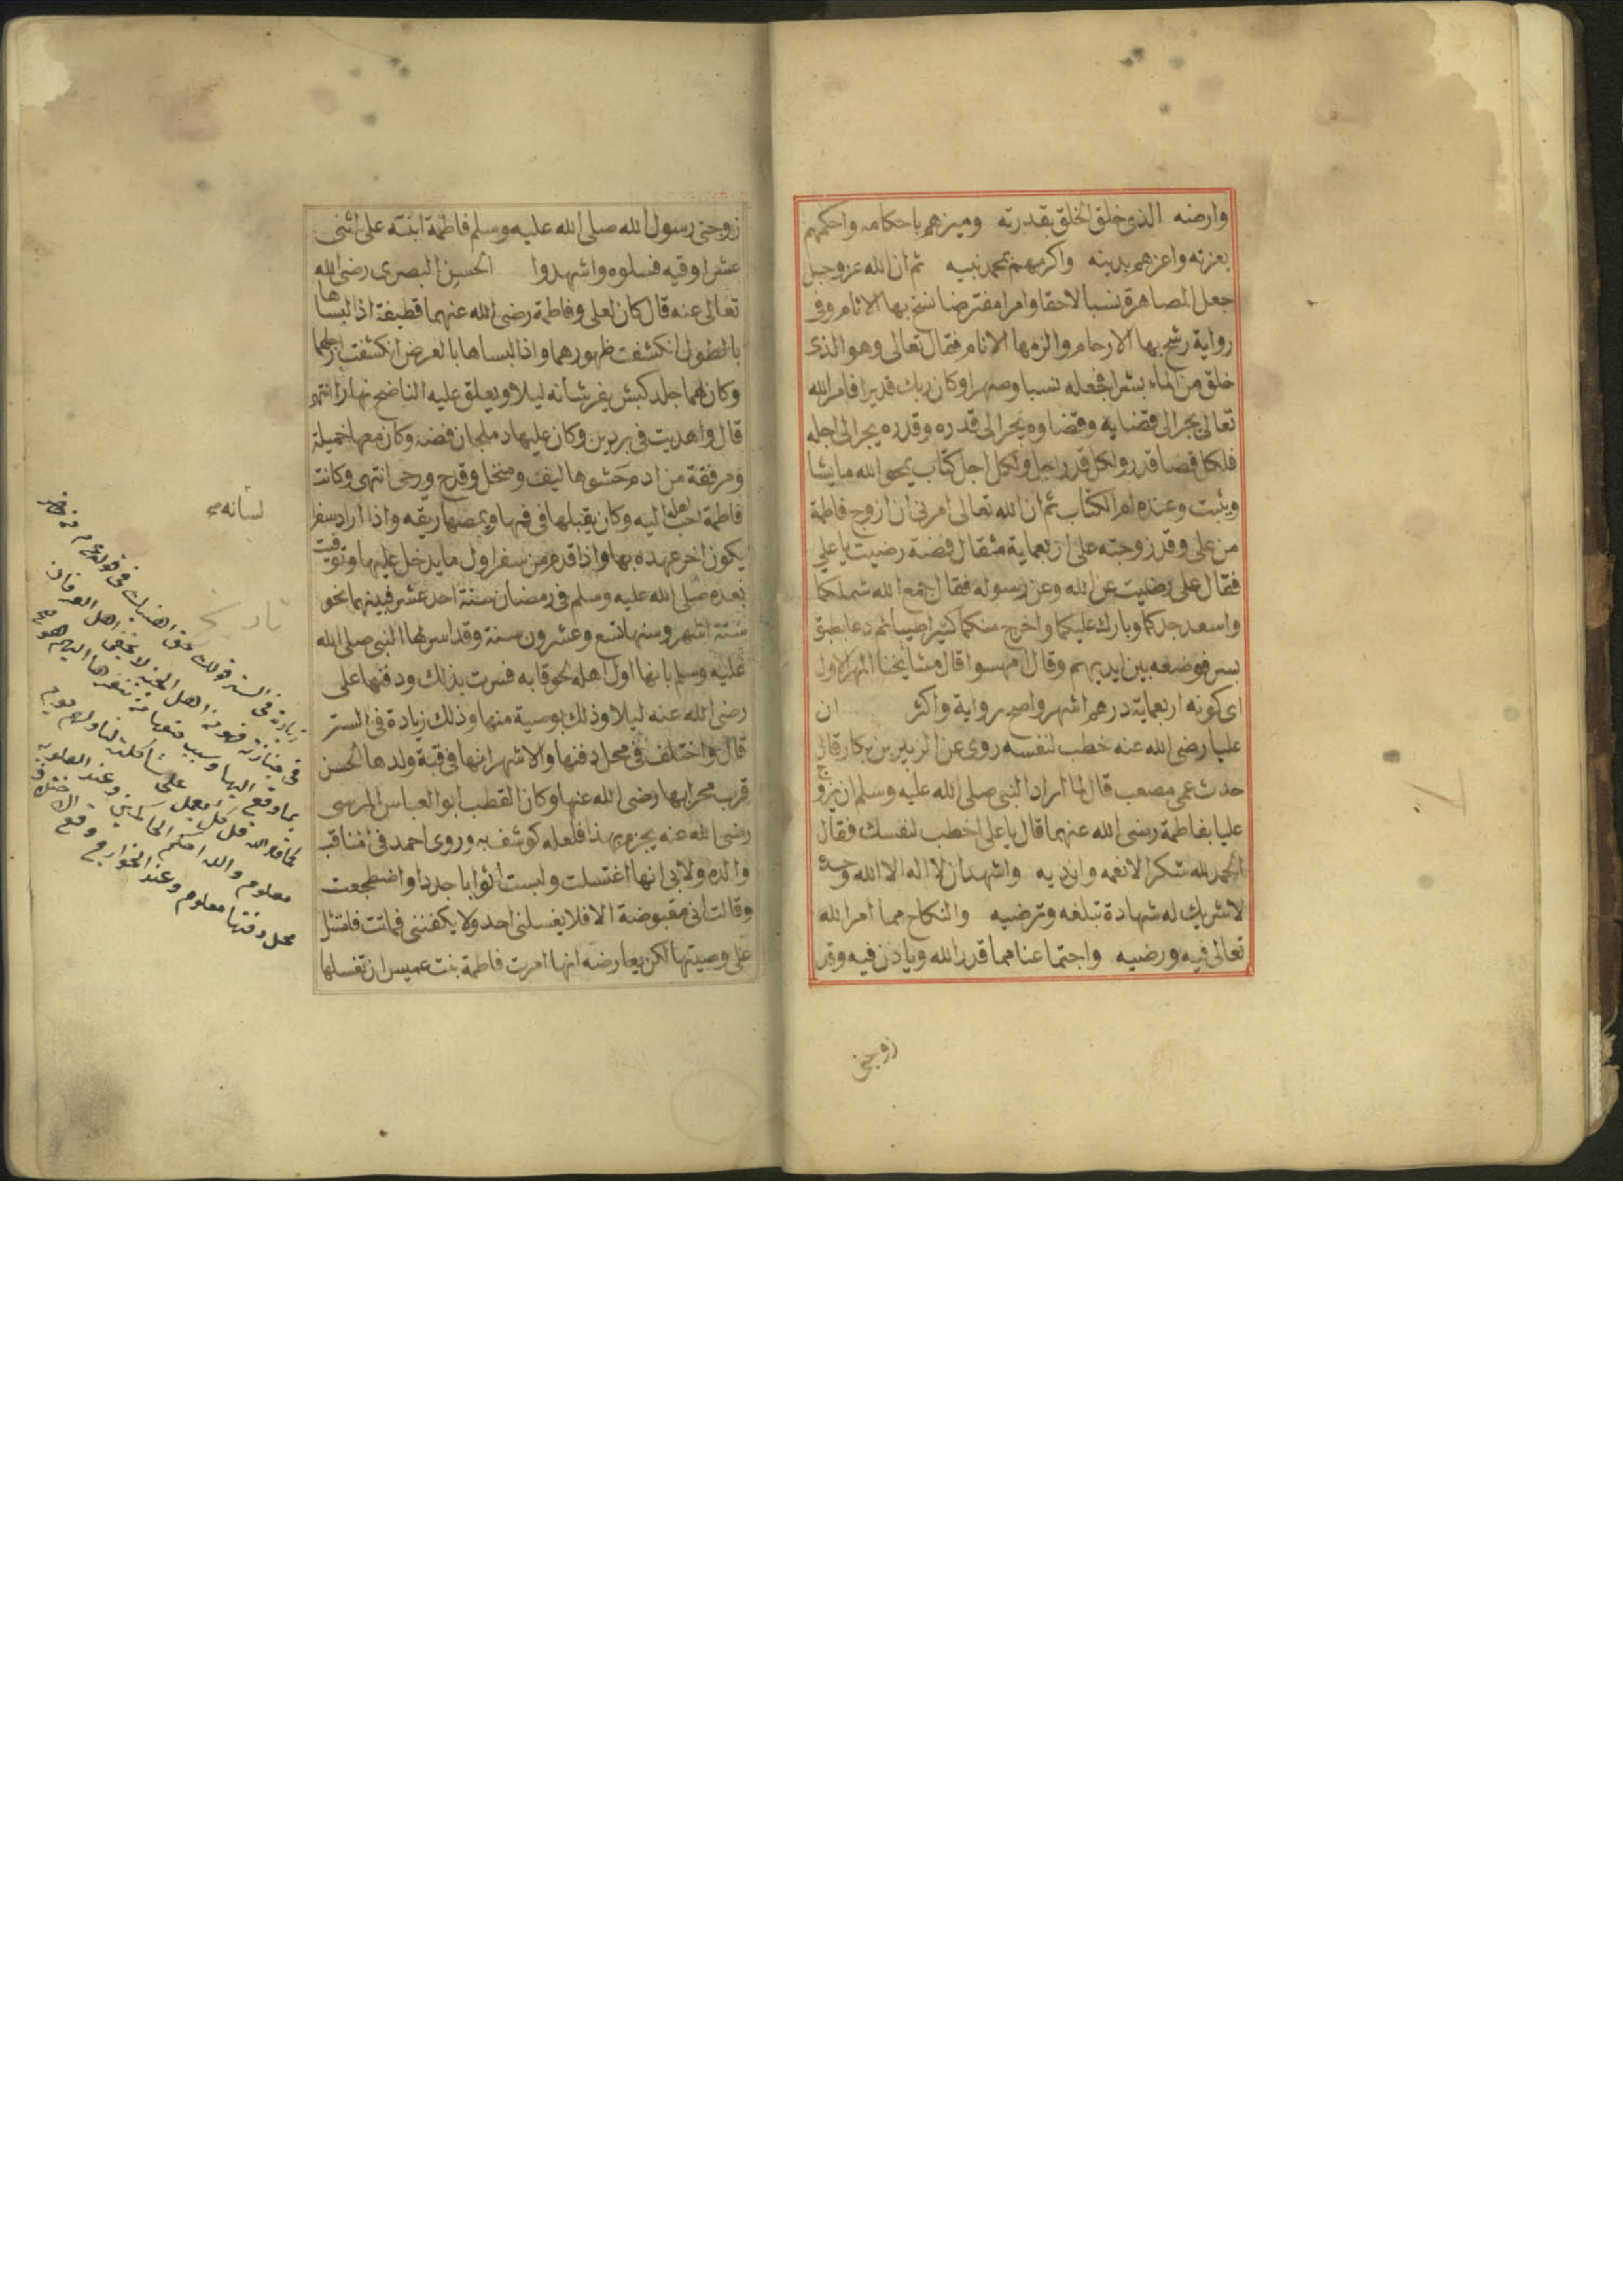 وارضه الذى خلق الخلق بقدرته وميزهم باحكامه واحكمهم
بعزته واعزهم بدينه واكرمهم بمحمد نبيه ثم ان الله عز وجل
جعل المصاهرة نسبا لاحقا وامرا مفترضا نسخ بها الاثام وفى
رواية رشح بها الارحام والزمها الانام فقال تعالى وهو الذى
خلق من الماء بشرا فجعله نسبا وصهرا وكان ربك قديرا فامر الله
تعالى يجرا الى قضايه وقضاوه يجرا الى قدره وقدره يجرا الى اجله
فلكل قضا قدر ولكل قدر اجل ولكل اجل كتاب يمحو الله ما يشا
ويثبت وعنده ام الكتاب ثم ان الله تعالى امرنى ان ازوج فاطمة
من على وقد زوجته على اربعماية مثقال فضة رضيت يا على
فقال على رضيت عن الله وعن رسوله فقال جمع الله شملكما
واسعد جدكما وبارك عليكما واخرج منكما كثيرا طيبا ثم دعا بطبق
بسر فوضعه بين ايديهم وقال انهسوا قال مشايخنا المهر الاول
اى كونه اربعماية درهم اشهر واصح رواية واكثر ان
عليا رضى الله عنه خطب لنفسه روى عن الزبير بن بكار قال
حدث عمى مصعب قال لما اراد النبى صلى الله عليه وسلم ان يزوج
عليا بفاطمة رضى الله عنهما قال يا على اخطب لنفسك فقال
الحمد لله شكرا لانعمه واياديه واشهد ان لا اله الا الله وحده
لا شريك له شهادة تبلغه وترضيه والنكاح مما امر الله
تعالى فيه ورضيه واجتماعنا مما قدر الله وياذن فيه وقد
زوجنى
زوجنى رسول الله صلى الله عليه وسلم فاطمة ابنته على اثنى
عشر اوقيه فسلوه واشهدوا الحسن البصرى رضى الله
تعالى عنه قال كان لعلى وفاطمة رضى الله عنهما قطيفة اذا لبساها
بالطول انكشفت ظهورهما واذا لبساها بالعرض انكشفت ارجلهما
وكان لهما جلد كبش يفرشانه ليلا ويعلق عليه الناضح نهارا انتهى
قال واهديت فى بردين وكان عليها دملجان فضه وكان معها خميلة
ومرفقة من ادم حشوها ليف ومنخل وقدح ورحى انتهى وكانت
فاطمة احب اهله اليه وكان يقبلها فى فمها ويمصها ريقه واذا اراد سفر
لسانه
يكون اخر عهده بها واذا قدم من سفر اول ما يدخل عليها وتوفيت
بعده صلى الله عليه وسلم فى رمضان سنة احد عشر فبينهما نحو
تاريخ
ستة اشهر وسنها تسع وعشرون سنة وقد اسر لها النبى صلى الله
عليه وسلم بانها اول اهله لحوقا به فسرت بذلك ودفنها على
رضى الله عنه ليلا وذلك بوصية منها وذلك زيادة فى الستر
قال واختلف فى محل دفنها والاشهر انها فى قبة ولدها الحسن
قرب محرابها رضى الله عنها وكان القطب ابو العباس المرسى
رضى الله عنه يجزم بهذا فلعله كوشف به وروى احمد فى المناقب
والده ولابى انها اغتسلت ولبست اثوابا جددا واضطجعت
وقالت انى مقبوضة الا فلا يغسلنى احد ولا يكفننى فماتت فامتثل
على وصيتها لكن يعارضه انها امرت فاطمة بنت عميس ان تغسلها
زيادة فى الستر قولك
فى جنازته اهل الجنة لا يخفى اهل العرفان
بما وقع اليها وسبب
قل كل يعمل على شاكلته
معلوم والله احكم الحاكمين وعند العلويه
محل دفنها معلوم وعند الخوارج وقع الاختلاف